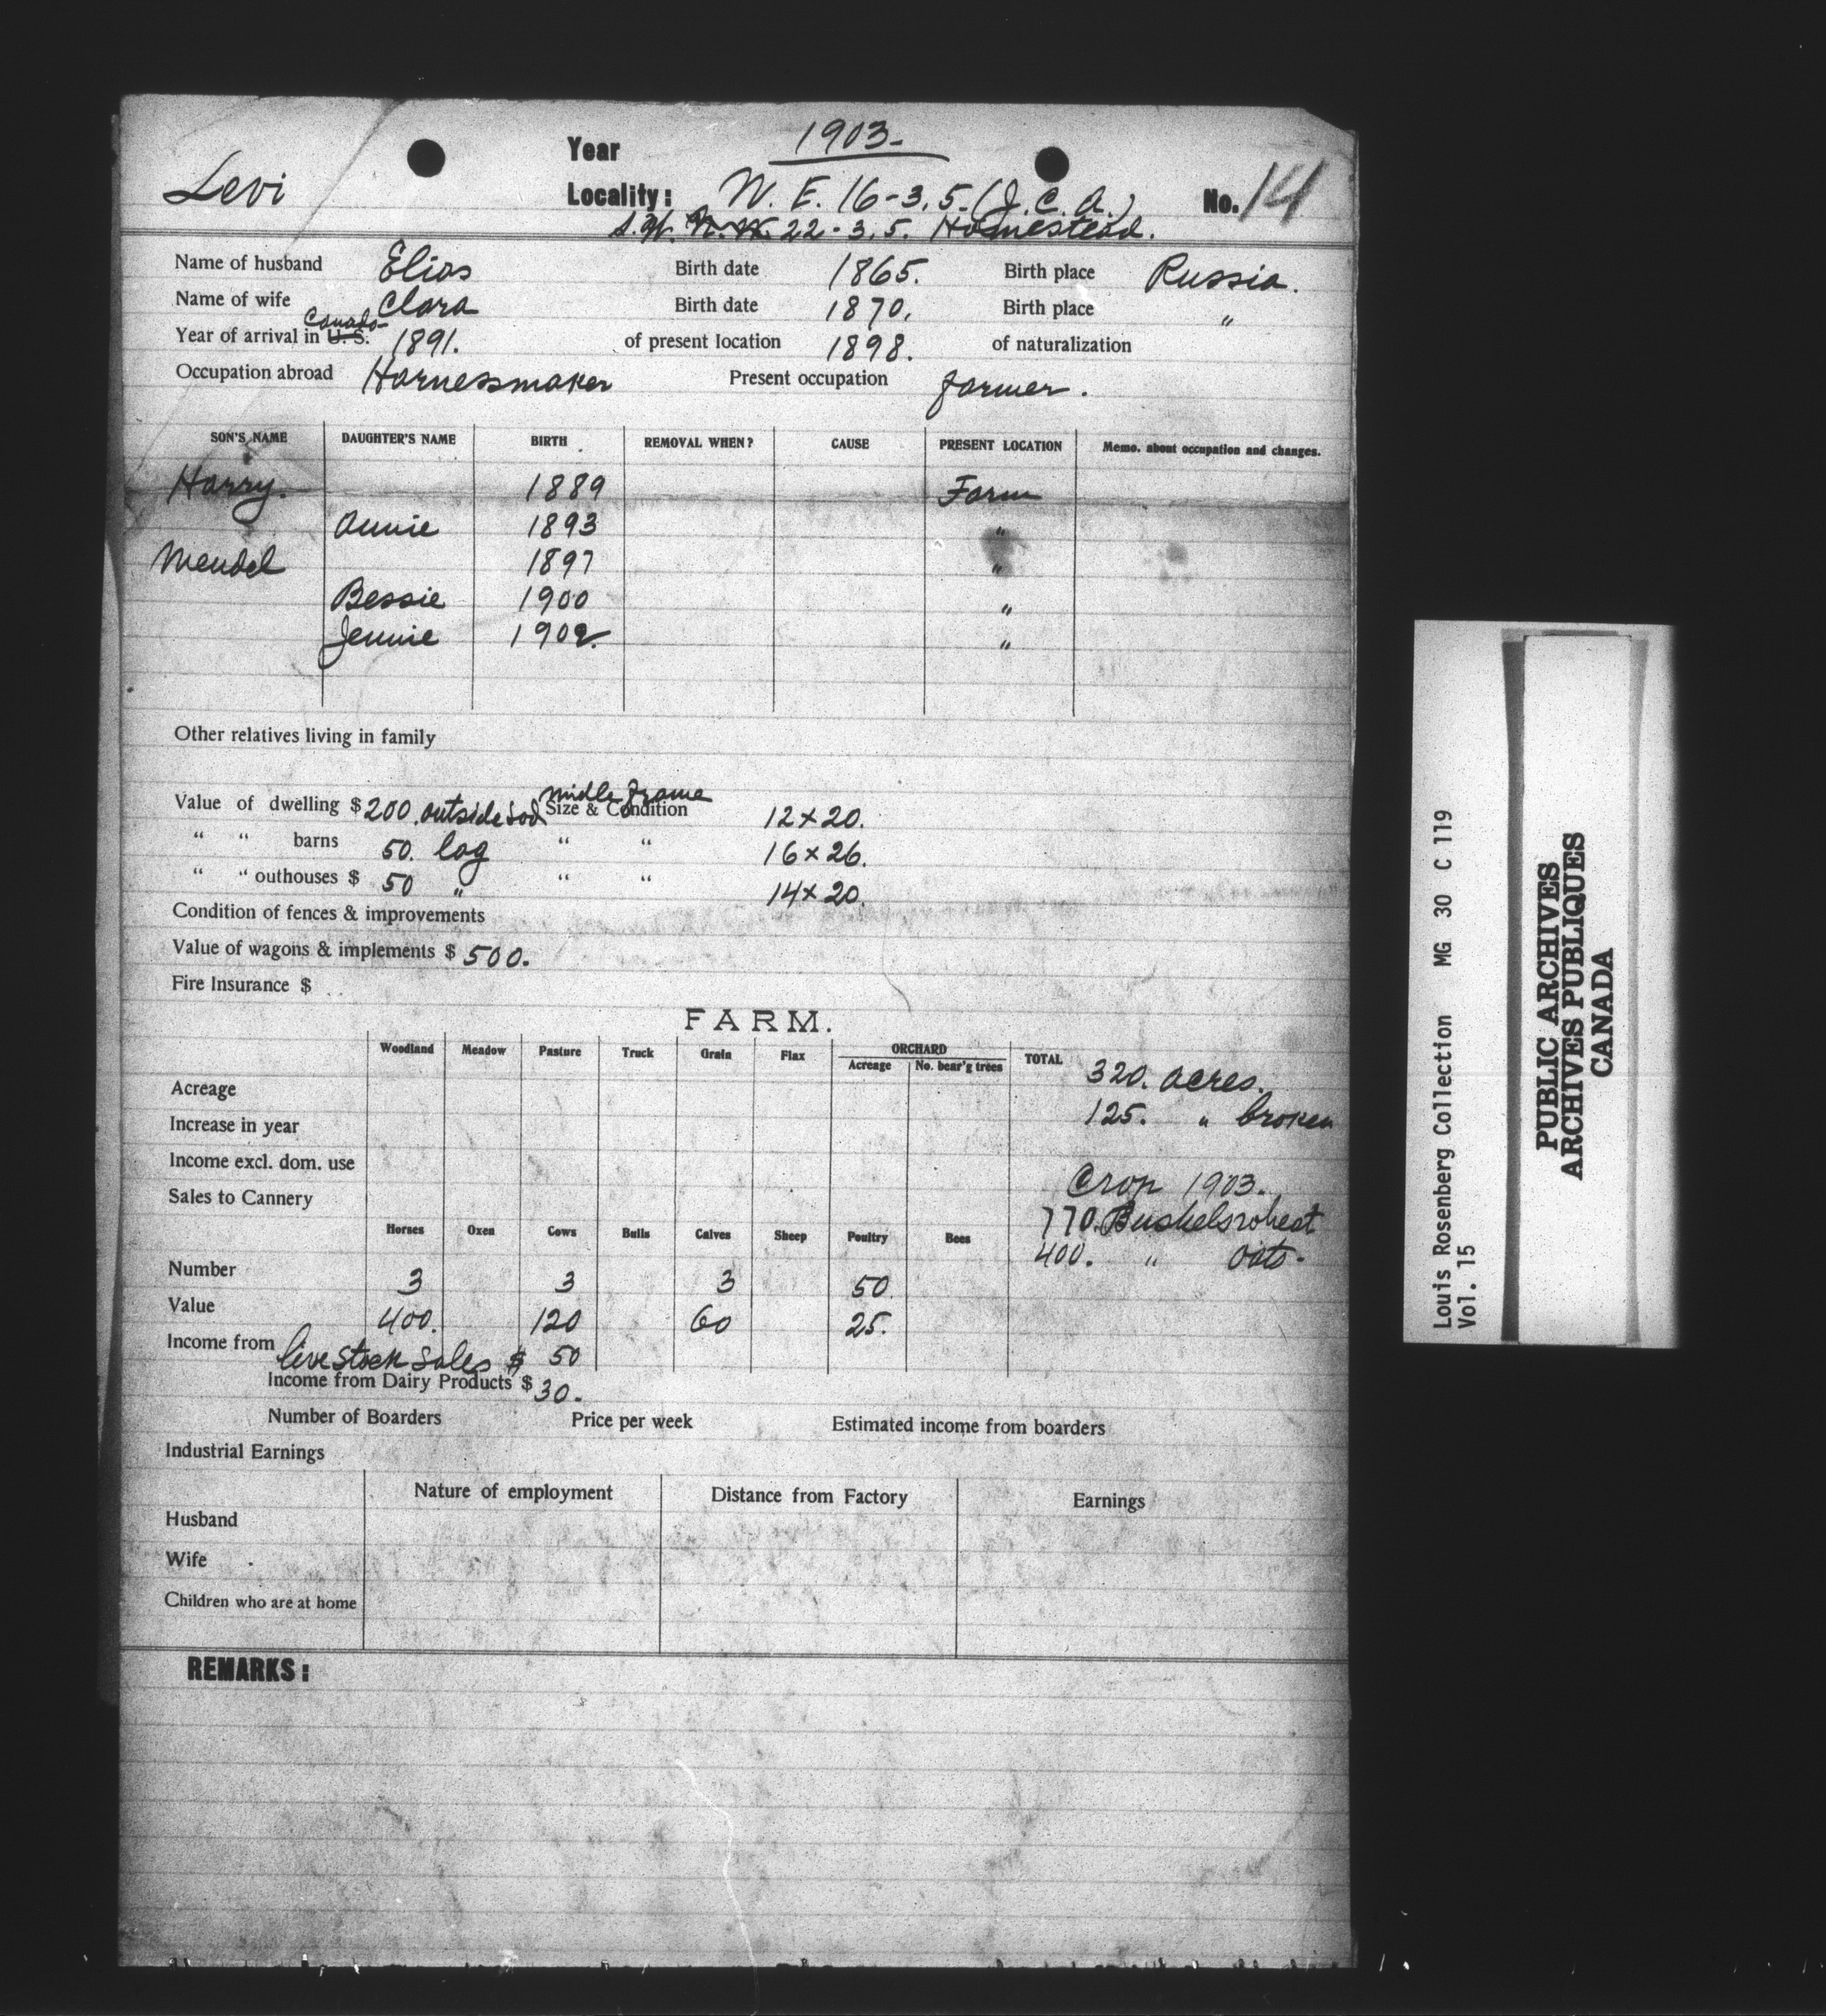 Year 1903.
Levi Locality: N. E. 16-3.5. (J. C. A.) No. 14
22-3.5. Homestead.
Name of husband Elias Birth date 1865. Birth place Russia.
Name of wife Clara Birth date 1870. Birth place "
Canada
Year of arrival in U. S. 1891. of present location 1898. of naturalization
Occupation abroad Harnessmaker Present occupation farmer.
SON'S NAME DAUGHTER'S NAME BIRTH REMOVAL WHEN? CAUSE PRESENT LOCATION Memo. about occupation and changes.
Harry. 1889 Farm
Annie 1893 "
Mendel 1897 "
Bessie 1900 "
Jennie 1902. "
Other relatives living in family
midle frame
Value of dwelling $ 200. outside sod Size & Condition 12 x 20.
" " barns 50. log " " 16 x 26.
" " outhouses $ 50 " " " 14 x 20.
Condition of fences & improvements
Value of wagons & implements $ 500.
Fire Insurance $
FARM.
Woodland Meadow Pasture Truck Grain Flax ORCHARD TOTAL
Acreage No. bear'g trees
Acreage 320. acres.
Increase in year 125. " broken
Income excl. dom. use
Sales to Cannery Crop 1903.
770. Bushels wheat
Horses Oxen Cows Bulls Calves Sheep Poultry Bees
400. " oats.
Number 3 3 3 50
Value 400. 120 60 25.
Income from live stock sales $ 50
Income from Dairy Products $ 30.
Number of Boarders Price per week Estimated income from boarders
Industrial Earnings
Nature of employment Distance from Factory Earnings
Husband
Wife
Children who are at home
REMARKS:
Louis Rosenberg Collection MG 30 C 119
Vol. 15
PUBLIC ARCHIVES
ARCHIVES PUBLIQUES
CANADA